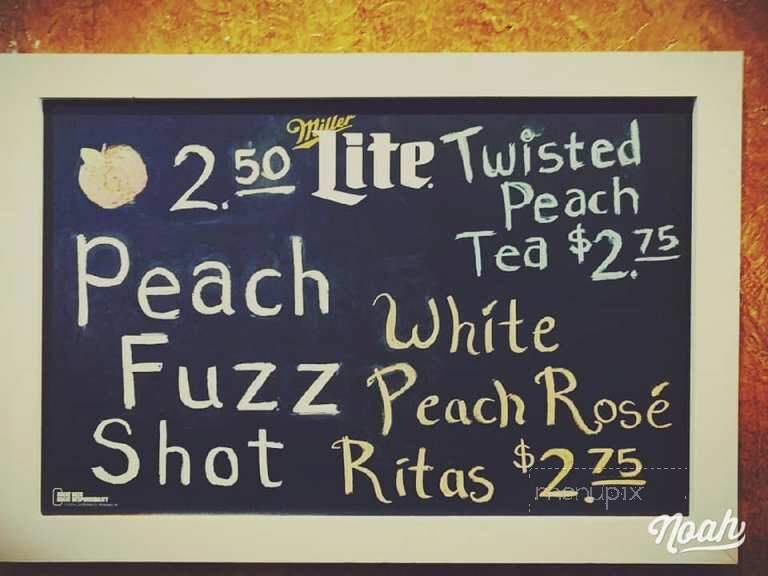 2.50
Peach
Fuzz
Shot
Miller
Lite
Twisted
Peach
Tea $2.75
White
Peach Rosé
Ritas $2.75
menupix
Noah